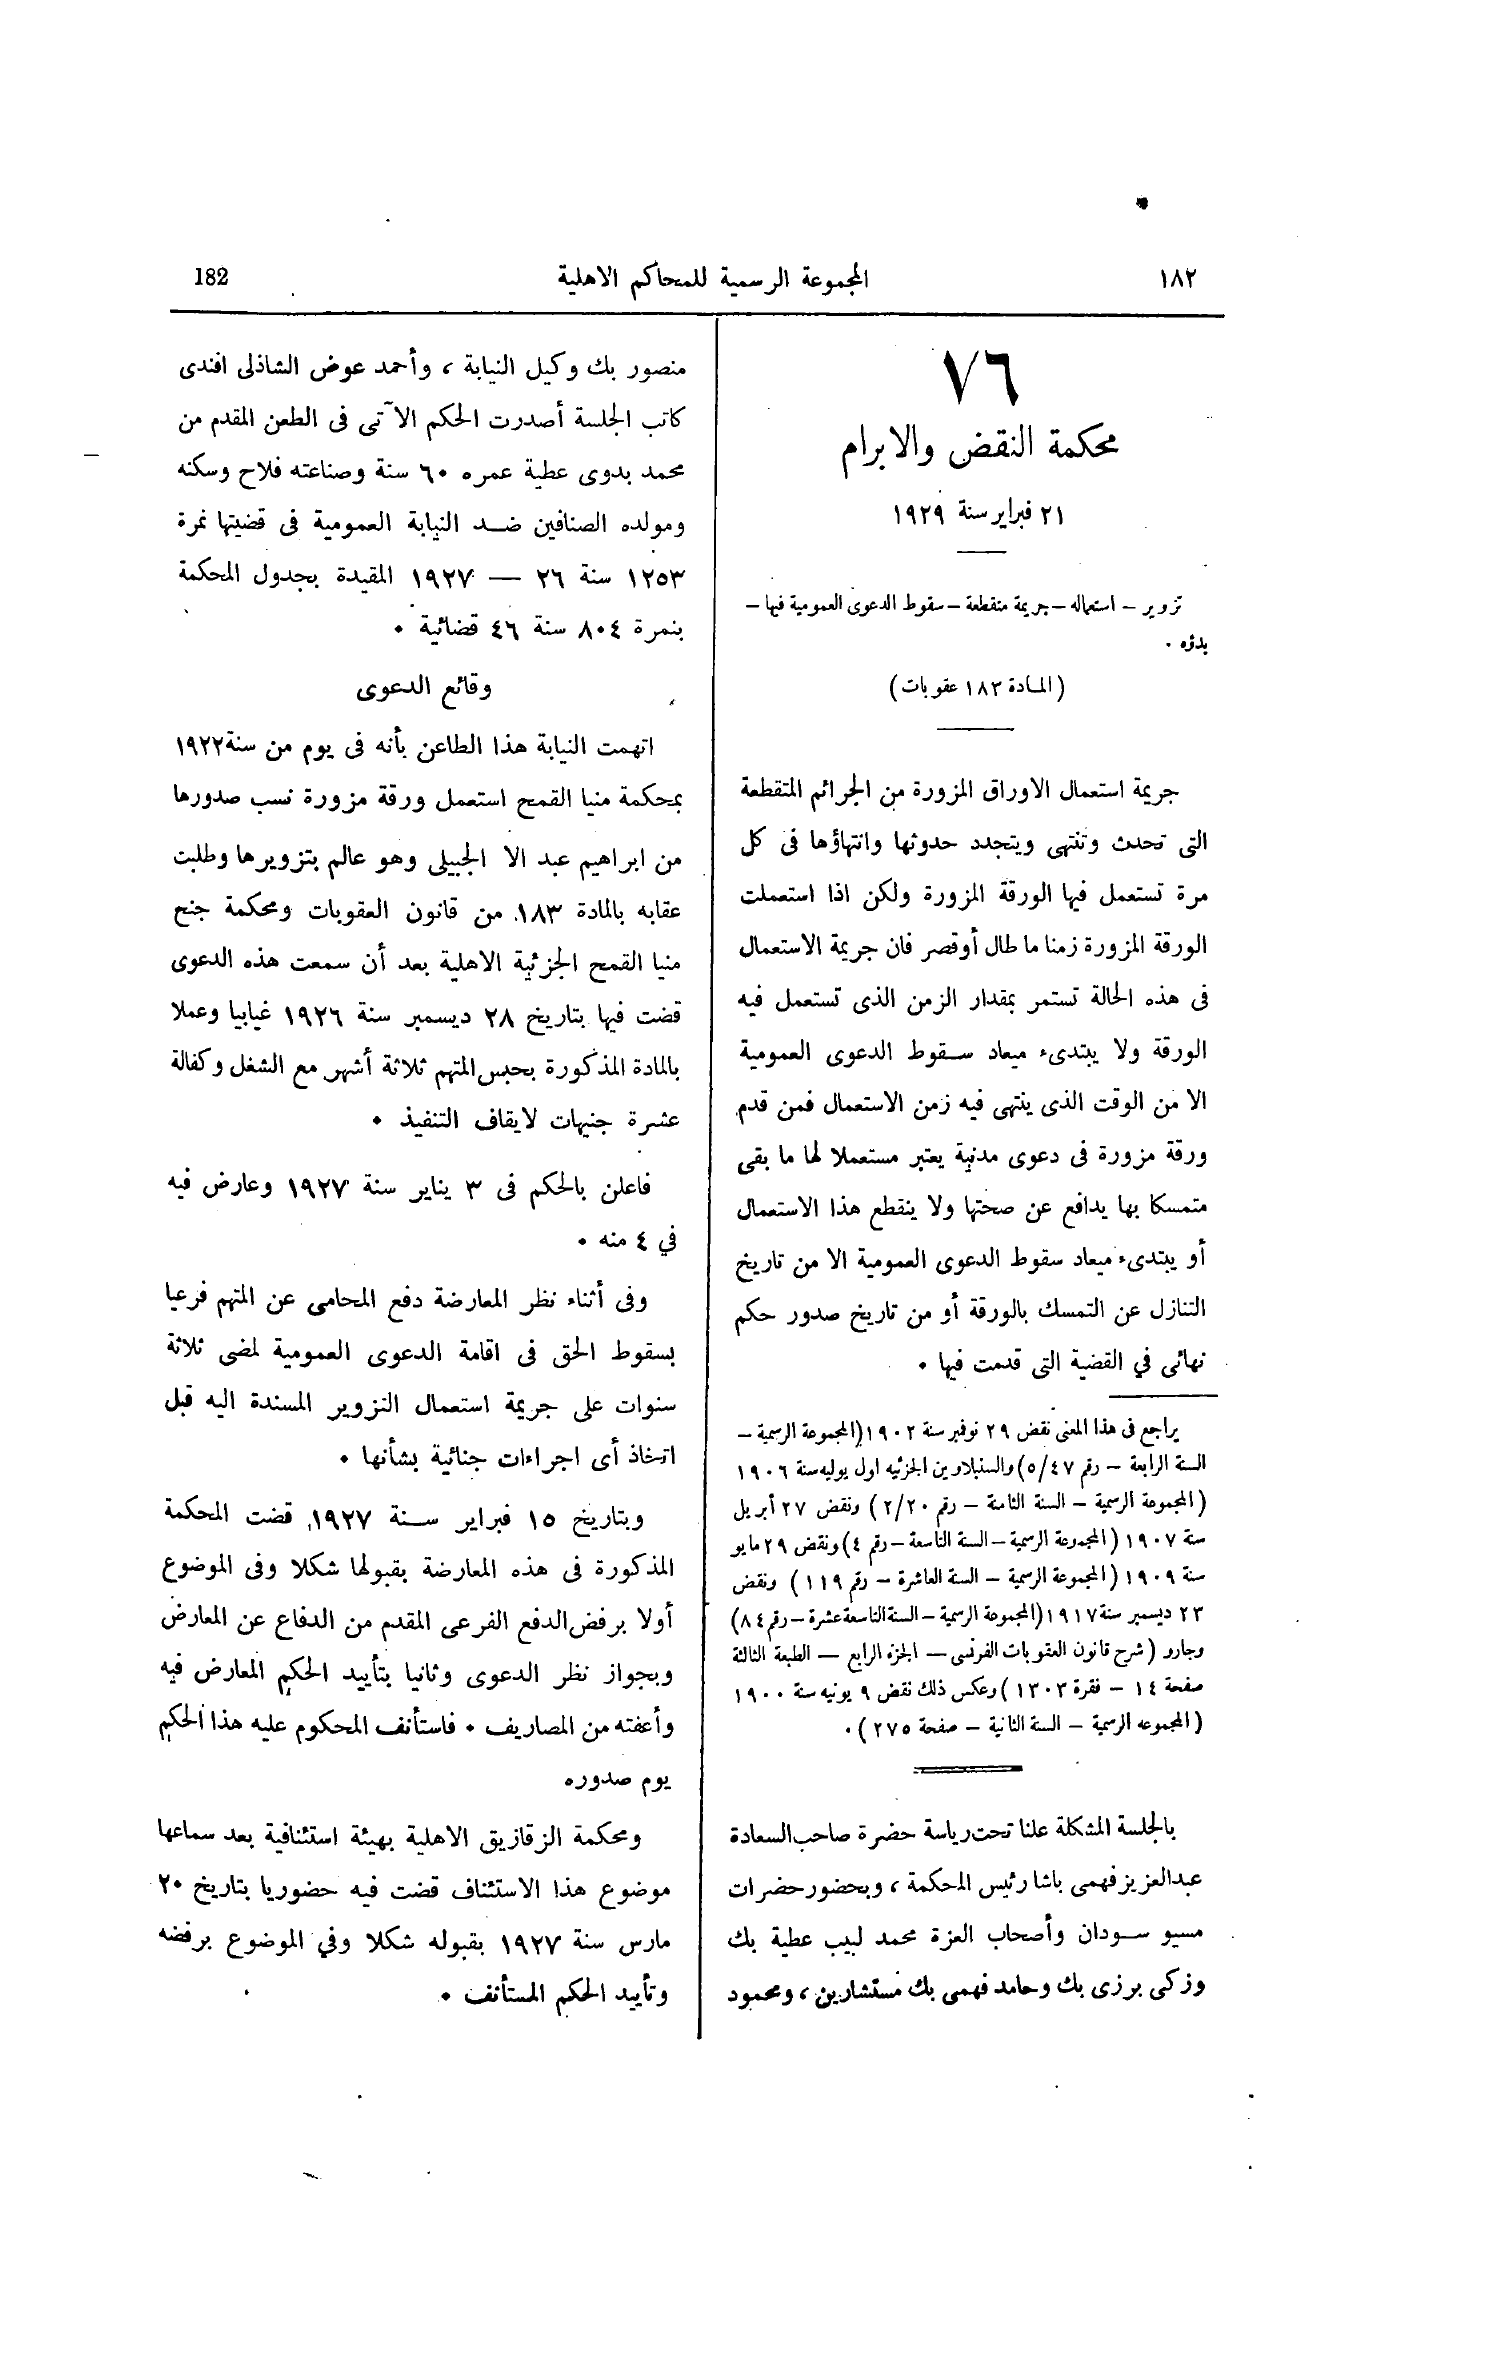 ١٨٢
المجموعة الرسمية للمحاكم الاهلية
182
٧٦
محكمة النقض والابرام
٢١ فبراير سنة ١٩٢٩
تزوير – استعماله – جريمة متقطعة – سقوط الدعوى العمومية فيها –
بدؤه .
(المادة ١٨٣ عقوبات)
جريمة استعمال الاوراق المزورة من الجرائم المتقطعة
التى تحدث وتنتهى ويتجدد حدوثها وانتهاؤها فى كل
مرة تستعمل فيها الورقة المزورة ولكن اذا استعملت
الورقة المزورة زمنا ما طال أو قصر فان جريمة الاستعمال
فى هذه الحالة تستمر بمقدار الزمن الذى تستعمل فيه
الورقة ولا يبتدىء ميعاد سقوط الدعوى العمومية
الا من الوقت الذى ينتهى فيه زمن الاستعمال فمن قدم
ورقة مزورة فى دعوى مدنية يعتبر مستعملا لها ما بقى
متمسكا بها يدافع عن صحتها ولا ينقطع هذا الاستعمال
أو يبتدىء ميعاد سقوط الدعوى العمومية الا من تاريخ
التنازل عن التمسك بالورقة أو من تاريخ صدور حكم
نهائى في القضية التى قدمت فيها .
يراجع فى هذا المعنى نقض ٢٩ نوفمبر سنة ١٩٠٢ (المجموعة الرسمية –
السنة الرابعة – رقم ٥/٤٧) والسنبلاوين الجزئيه اول يوليه سنة ١٩٠٦
(المجموعة الرسمية – السنة الثامنة – رقم ٢/٢٠) ونقض ٢٧ أبريل
سنة ١٩٠٧ (المجموعة الرسمية – السنة التاسعة – رقم ٤) ونقض ٢٩ مايو
سنة ١٩٠٩ (المجموعة الرسمية – السنة العاشرة – رقم ١١٩) ونقض
٢٣ ديسمبر سنة ١٩١٧ (المجموعة الرسمية – السنة التاسعة عشرة – رقم ٨٤)
وجارو (شرح قانون العقوبات الفرنسى – الجزء الرابع – الطبعة الثالثة
صفحة ١٤ – فقرة ١٣٠٣) وعكس ذلك نقض ٩ يونيه سنة ١٩٠٠
(المجموعه الرسمية – السنة الثانية – صفحة ٢٧٥) .
بالجلسة المشكلة علنا تحت رياسة حضرة صاحب السعادة
عبدالعزيز فهمى باشا رئيس المحكمة ، وبحضور حضرات
مسيو سودان وأصحاب العزة محمد لبيب عطية بك
وزكى برزى بك وحامد فهمى بك مستشارين ، ومحمود
منصور بك وكيل النيابة ، وأحمد عوض الشاذلى افندى
كاتب الجلسة أصدرت الحكم الآتى فى الطعن المقدم من
محمد بدوى عطية عمره ٦٠ سنة وصناعته فلاح وسكنه
ومولده الصنافين ضد النيابة العمومية فى قضيتها نمرة
١٢٥٣ سنة ٢٦ — ١٩٢٧ المقيدة بجدول المحكمة
بنمرة ٨٠٤ سنة ٤٦ قضائية .
وقائع الدعوى
اتهمت النيابة هذا الطاعن بأنه فى يوم من سنة ١٩٢٢
بمحكمة منيا القمح استعمل ورقة مزورة نسب صدورها
من ابراهيم عبد الا الجبيلى وهو عالم بتزويرها وطلبت
عقابه بالمادة ١٨٣ من قانون العقوبات ومحكمة جنح
منيا القمح الجزئية الاهلية بعد أن سمعت هذه الدعوى
قضت فيها بتاريخ ٢٨ ديسمبر سنة ١٩٢٦ غيابيا وعملا
بالمادة المذكورة بحبس المتهم ثلاثة أشهر مع الشغل وكفالة
عشرة جنيهات لايقاف التنفيذ .
فاعلن بالحكم فى ٣ يناير سنة ١٩٢٧ وعارض فيه
في ٤ منه .
وفى أثناء نظر المعارضة دفع المحامى عن المتهم فرعيا
بسقوط الحق فى اقامة الدعوى العمومية لمضى ثلاثة
سنوات على جريمة استعمال التزوير المسندة اليه قبل
اتخاذ أى اجراءات جنائية بشأنها .
وبتاريخ ١٥ فبراير سنة ١٩٢٧ قضت المحكمة
المذكورة فى هذه المعارضة بقبولها شكلا وفى الموضوع
أولا برفض الدفع الفرعى المقدم من الدفاع عن المعارض
وبجواز نظر الدعوى وثانيا بتأييد الحكم المعارض فيه
وأعفته من المصاريف . فاستأنف المحكوم عليه هذا الحكم
يوم صدوره
ومحكمة الزقازيق الاهلية بهيئة استئنافية بعد سماعها
موضوع هذا الاستئناف قضت فيه حضوريا بتاريخ ٢٠
مارس سنة ١٩٢٧ بقبوله شكلا وفي الموضوع برفضه
وتأييد الحكم المستأنف .